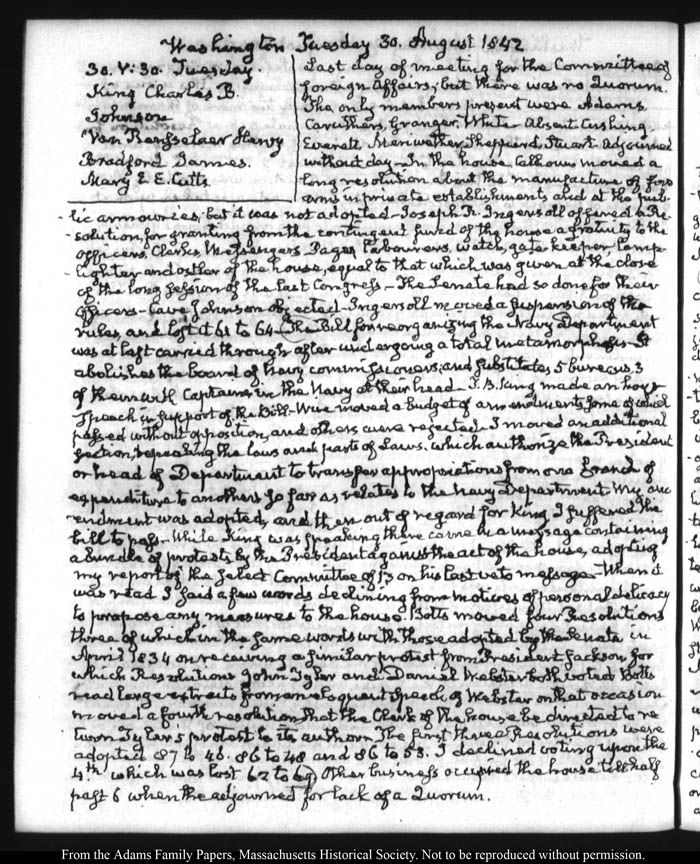 Washington Tuesday 30. August 1842
30. V:30. Tuesday.
King Charles B.
Johnson
Van Rensselaer Henry
Bradford James.
Mary E. E. Cutts
Last day of meeting for the Committee of
foreign Affairs, but there was no Quorum.
The only members present were Adams
Caruthers, Granger, White Absent Cushing,
Everett Meriwether, Shepperd, Stuart. Adjourned
without day— In the house Calhoun moved a
long resolution about the manufacture of fire
arms in private establishments and at the pub-
-lic armouries, but it was not adopted— Joseph R. Ingersoll offered a Re-
-solution, for granting from the contingent fund of the house a gratuity to the
officers, Clerks, Messengers Pages, labourers, watch, gate keeper, lamp-
-lighter and ostler of the house, equal to that which was given at the close
of the long session of the last Congress— The Senate had so done for their
officers— Cave Johnson objected— Ingersoll moved a suspension of the
rules, and lost it 61 to 64— The Bill for reorganizing the Navy Department
was at last carried through after undergoing a total metamorphosis— It
abolishes the board of Navy commissioners, and substitutes 5 bureaus, 3
of them with Captains in the Navy at their head J. B. King made an hour
Speech in support of the Bill— Wise moved a budget of amendments some of which
passed without opposition, and others were rejected— I moved an additional
section, repealing the laws and parts of Laws, which authorize the President
or head of Department to transfer appropriations from one branch of
expenditure to another, so far as relates to the Navy Department My am-
-endment was adopted, and then out of regard for King, I suffered the
bill to pass— While King was speaking there came in a message containing
a bundle of protests by the President against the act of the house, adopting
my report of the select Committee of 13 on his last veto message— When it
was read I said a few words declining from motives of personal delicacy
to propose any measures to the house— Botts moved four Resolutions
three of which in the same words with those adopted by the Senate in
April 1834 on receiving a similar protest from President Jackson, for
which Resolutions John Tyler and Daniel Webster both voted Botts
read large extracts from an eloquent speech of Webster on that occasion
moved a fourth resolution that the Clerk of the house be directed to re
turn Tyler's protest to its author— The first three Resolutions were
adopted 87 to 46. 86 to 48 and 86 to 53. I declined voting upon the
4th which was lost 62 to 69 Other business occupied the house till half
past 6 when they adjourned for lack of a Quorum.
From the Adams Family Papers, Massachusetts Historical Society. Not to be reproduced without permission.